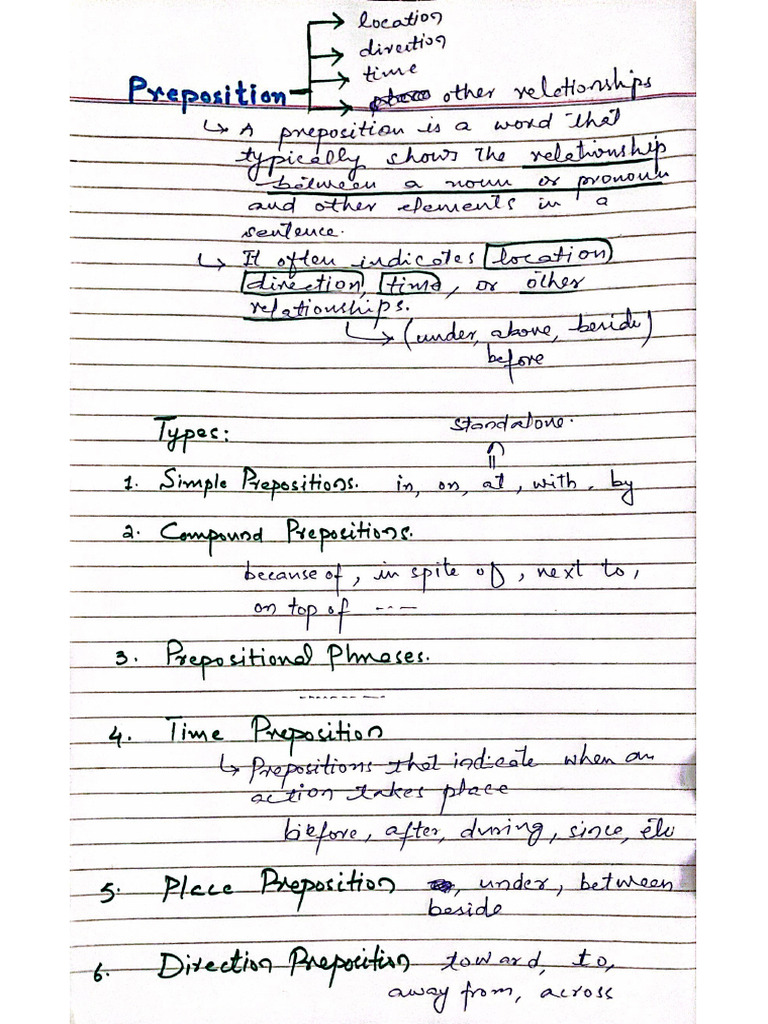 location
direction
time
Preposition other relationships
↳ A preposition is a word that
typically shows the relationship
between a noun or pronoun
and other elements in a
sentence.
↳ It often indicates location
direction, time, or other
relationships.
↳ (under, above, beside)
before
Types:
standalone.
1. Simple Prepositions. in, on, at, with, by
2. Compound Prepositions.
because of, in spite of, next to,
on top of ----
3. Prepositional Phrases.
----------
4. Time Preposition
↳ Prepositions that indicate when an
action takes place
before, after, during, since, etc
5. Place Preposition , under, between
beside
6. Direction Preposition toward, to,
away from, across